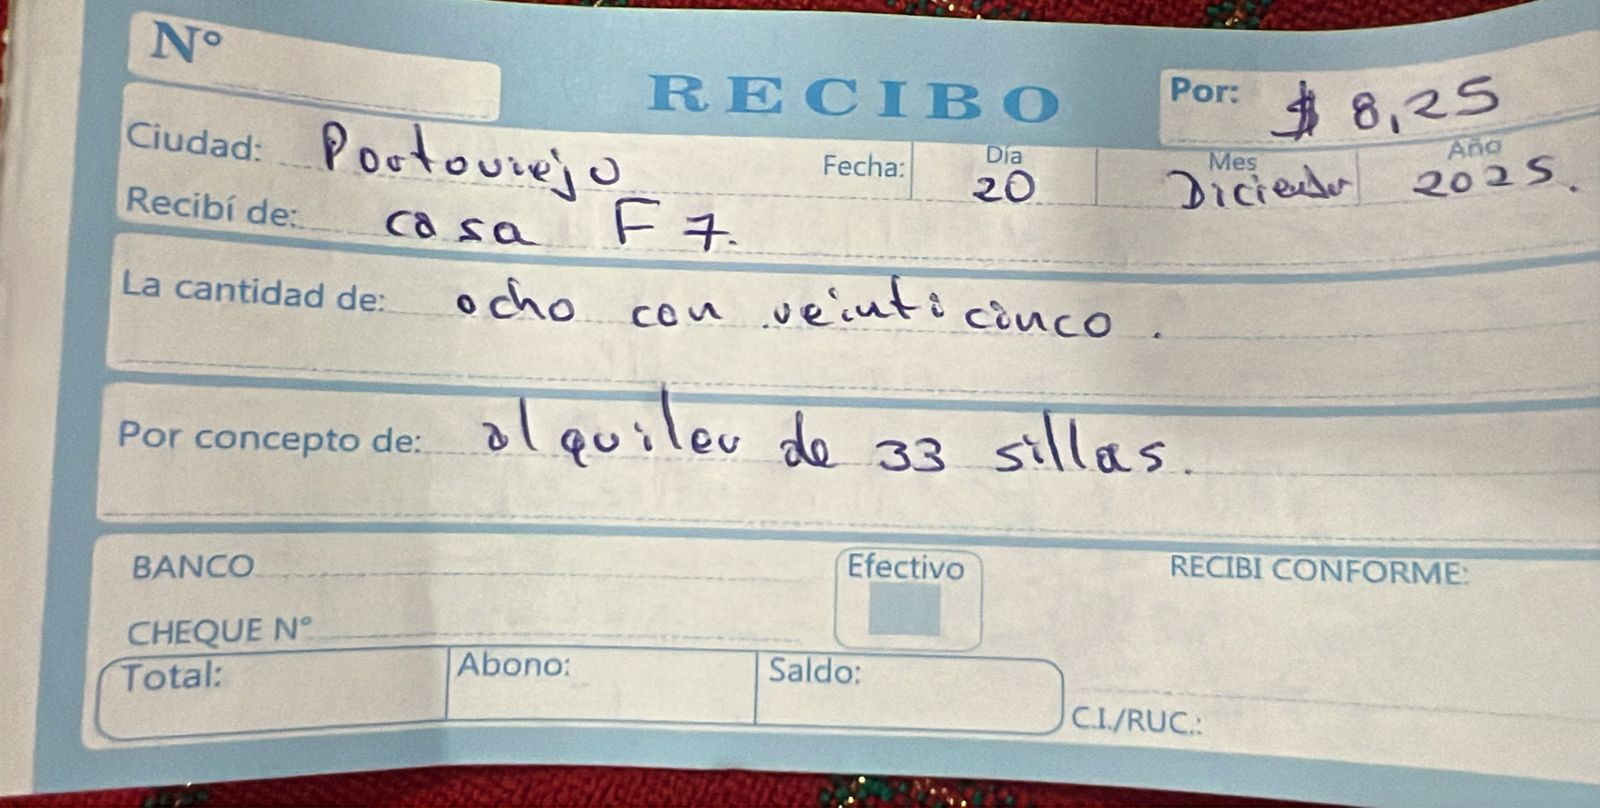 N°
RECIBO
Por: $ 8,25
Ciudad: Portoviejo Fecha: Día 20 Mes Diciembre Año 2025.
Recibí de: casa F7.
La cantidad de: ocho con veinticinco.
Por concepto de: alquiler de 33 sillas.
BANCO Efectivo RECIBI CONFORME:
CHEQUE N°
Total: Abono: Saldo:
C.I./RUC.: